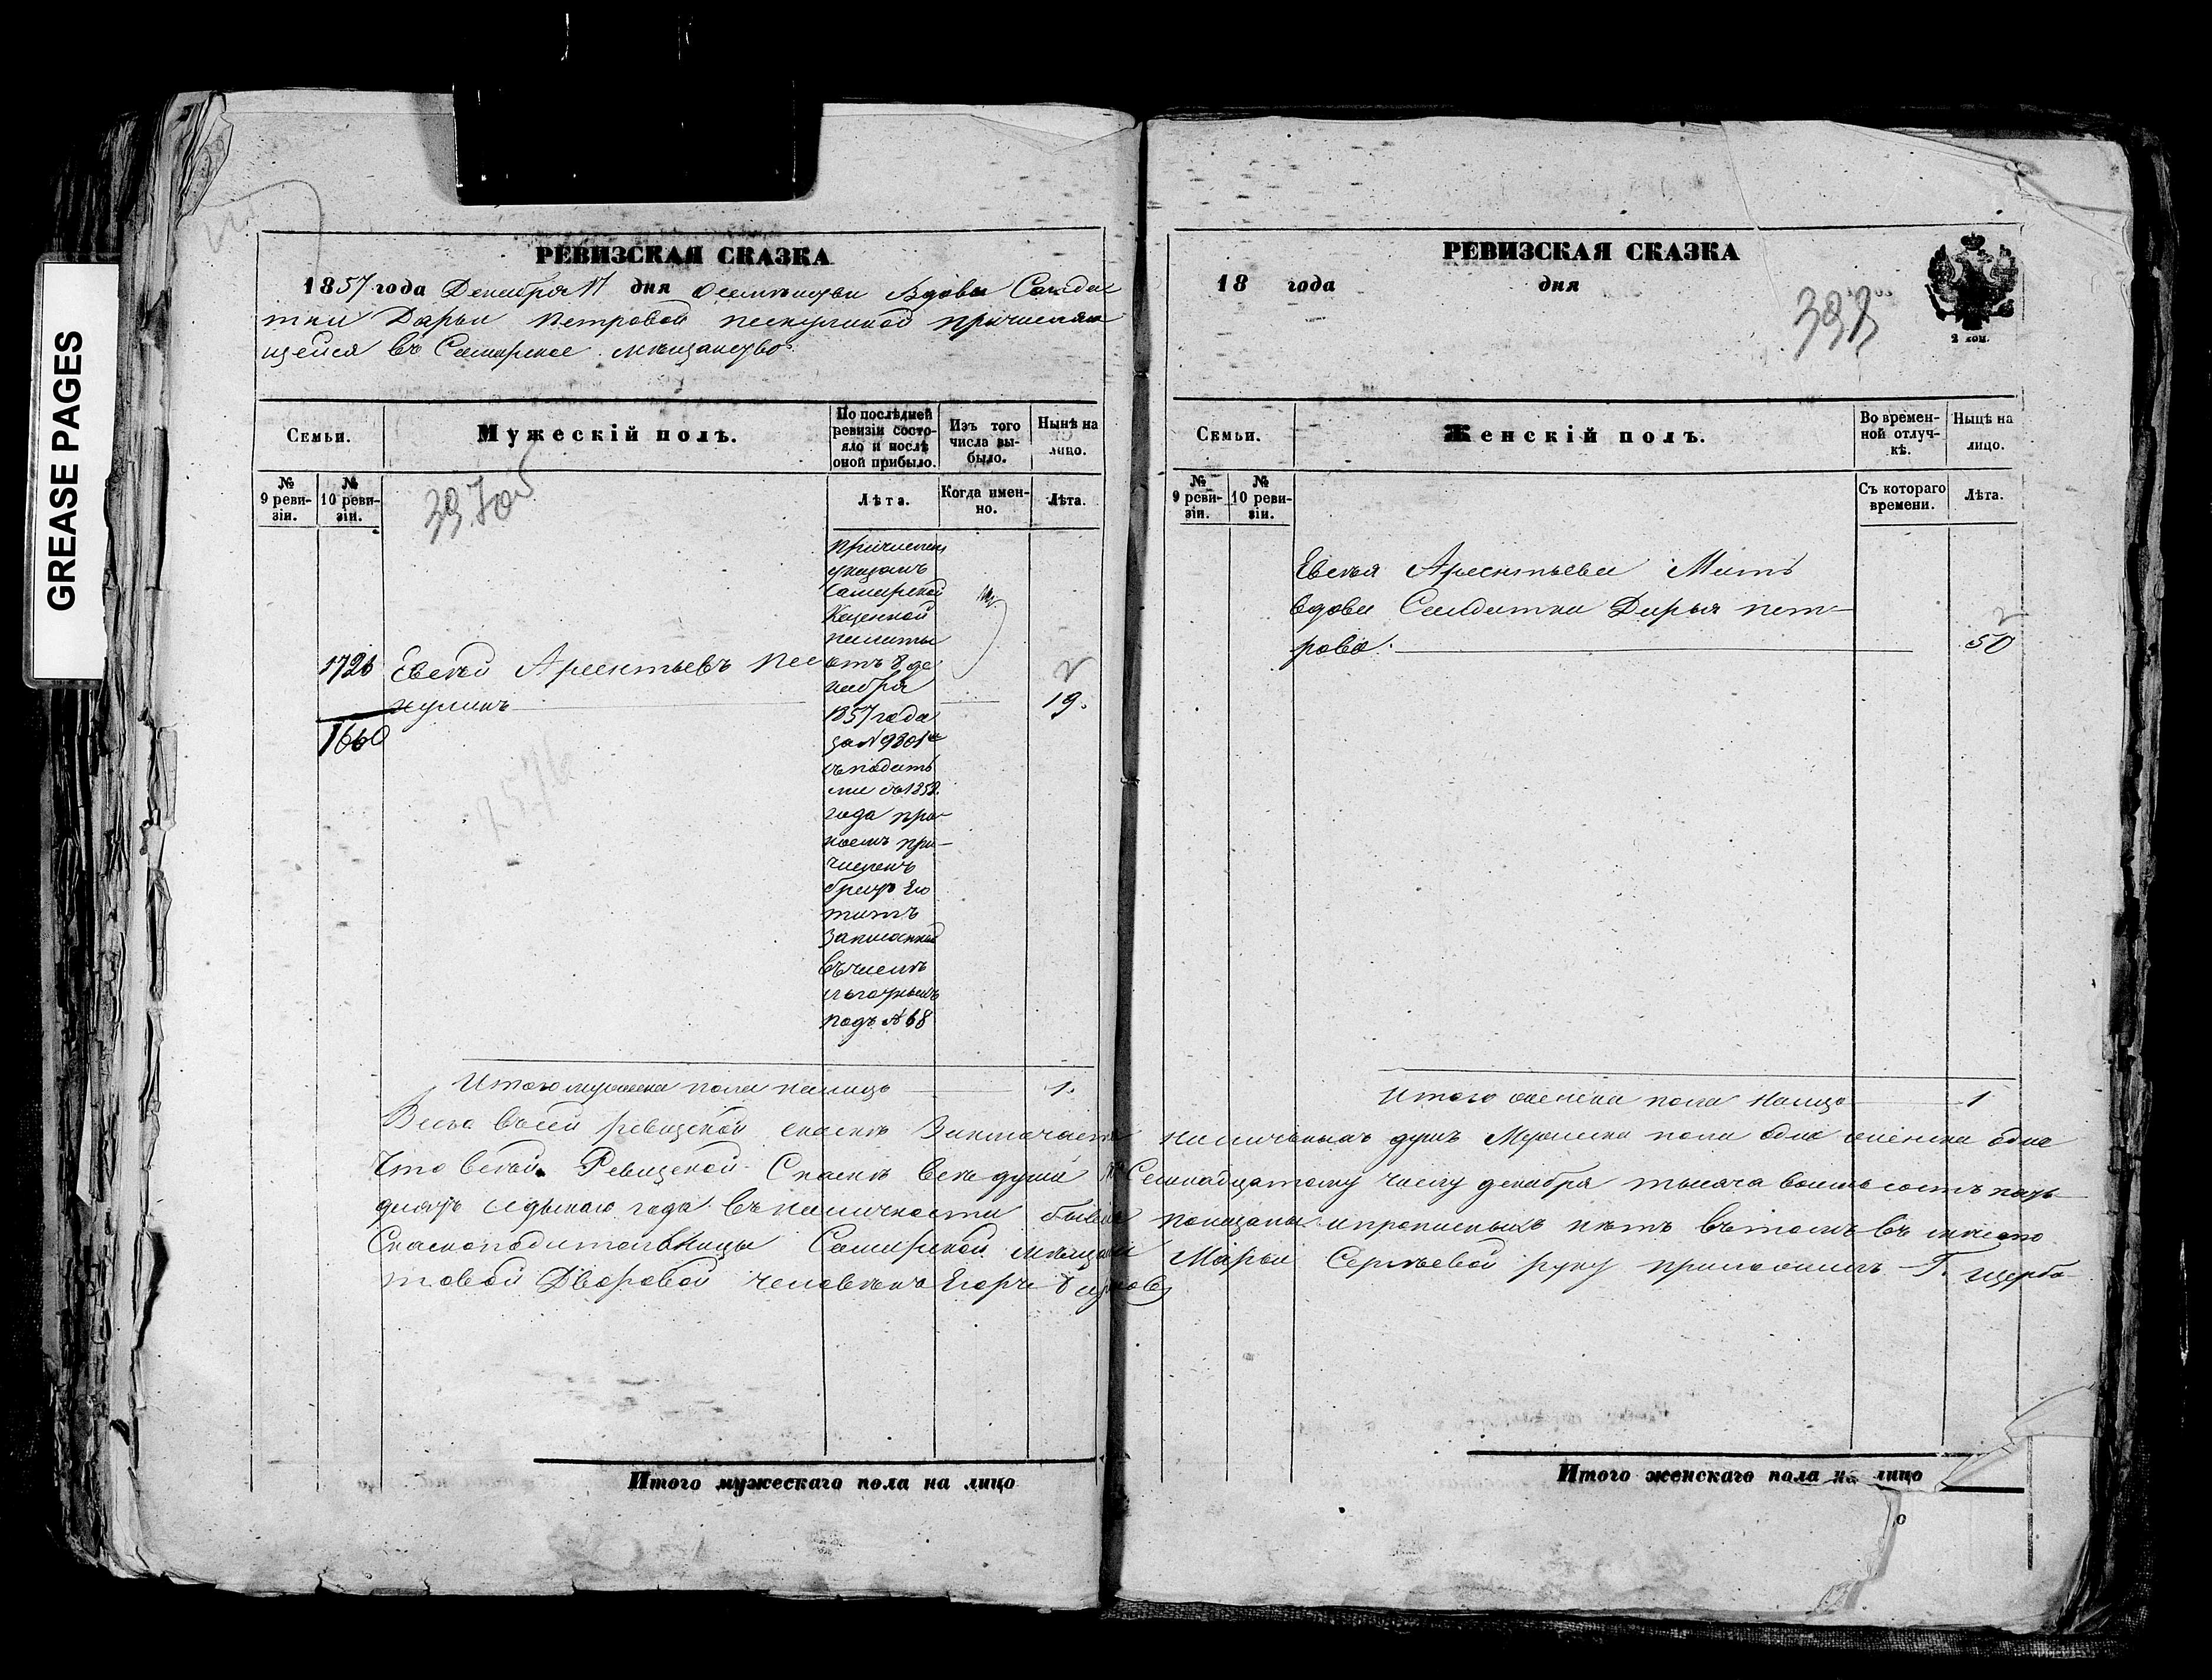 GREASE PAGES
РЕВИЗСКАЯ СКАЗКА
1857 года Декабря 17 дня о семействѣ Вдовы Солда
тки Дарьи Петровой Пескулиной причисляю
щейся въ Самарское мѣщанство
Семьи.
Мужескій полъ.
По послѣдней ревизіи состо-
яло и послѣ
оной прибыло.
Изъ того
числа вы-
было.
Нынѣ на
лицо.
№
9 реви-
зіи.
№
10 реви-
зіи.
397 об
Лѣта.
Когда имен-
но.
Лѣта.
причислен
указомъ
Самарской
Казенной
палаты
отъ 8 де
кабря
1857 года
за № 9801
съ податя
ми съ 1858
года при
коемъ при-
численъ
братъ Его
Титъ
Записанный
въ числѣ
льготныхъ
подъ № 68
1726
1660
Евсѣй Арсентьевъ Пес
кулинъ
2
19.
Итого мужеска пола налицо 1.
РЕВИЗСКАЯ СКАЗКА
18 года дня
398
2 коп.
Семьи.
Женскій полъ.
Во времен-
ной отлуч-
кѣ.
Нынѣ на
лицо.
№
9 реви-
зіи.
№
10 реви-
зіи.
Съ котораго
времени.
Лѣта.
Евсѣя Арсентьева Мать
вдова Солдатка Дарья Пет-
рова.
2
50
Итого женска пола налицо 1
Всего въ сей ревизской сказкѣ Заключается наличныхъ душъ Мужеска пола одна женска одна
Что въ сей Ревизской Сказкѣ всѣ души къ Семнадцатому числу декабря тысяча восемь сотъ пять
десятъ седьмаго года въ наличности бывшія показаны и прописныхъ нѣтъ въ томъ въ мѣсто
Сказкоподательницы Самарской мѣщанки Марьи Сергѣевой руку приложилъ Г. Щерба
товой Дворовой человѣкъ Егоръ
Итого мужескаго пола на лицо
Итого женскаго пола на лицо